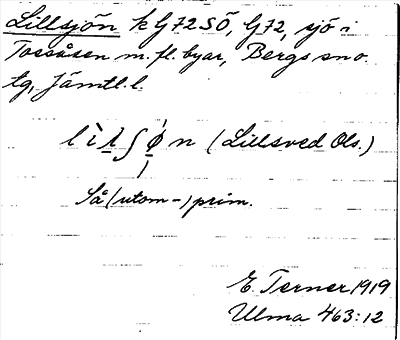 Lillsjön k G72SÖ, G72, sjö i
Tossåsen m. fl. byar, Bergs sn o.
tg, Jämtl. l.
(Lillsved Ols.)
Så (utom -) prim.
E. Terner 1919
Ulma 463:12